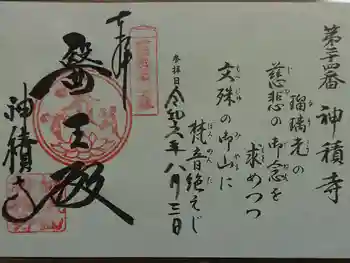 第二十四番 神積寺
瑠璃光の
慈悲の御念を
求めつつ
文殊の御山に
梵音絶えじ
参拝日 令和六年八月三日
奉拝
醫王殿
神積寺